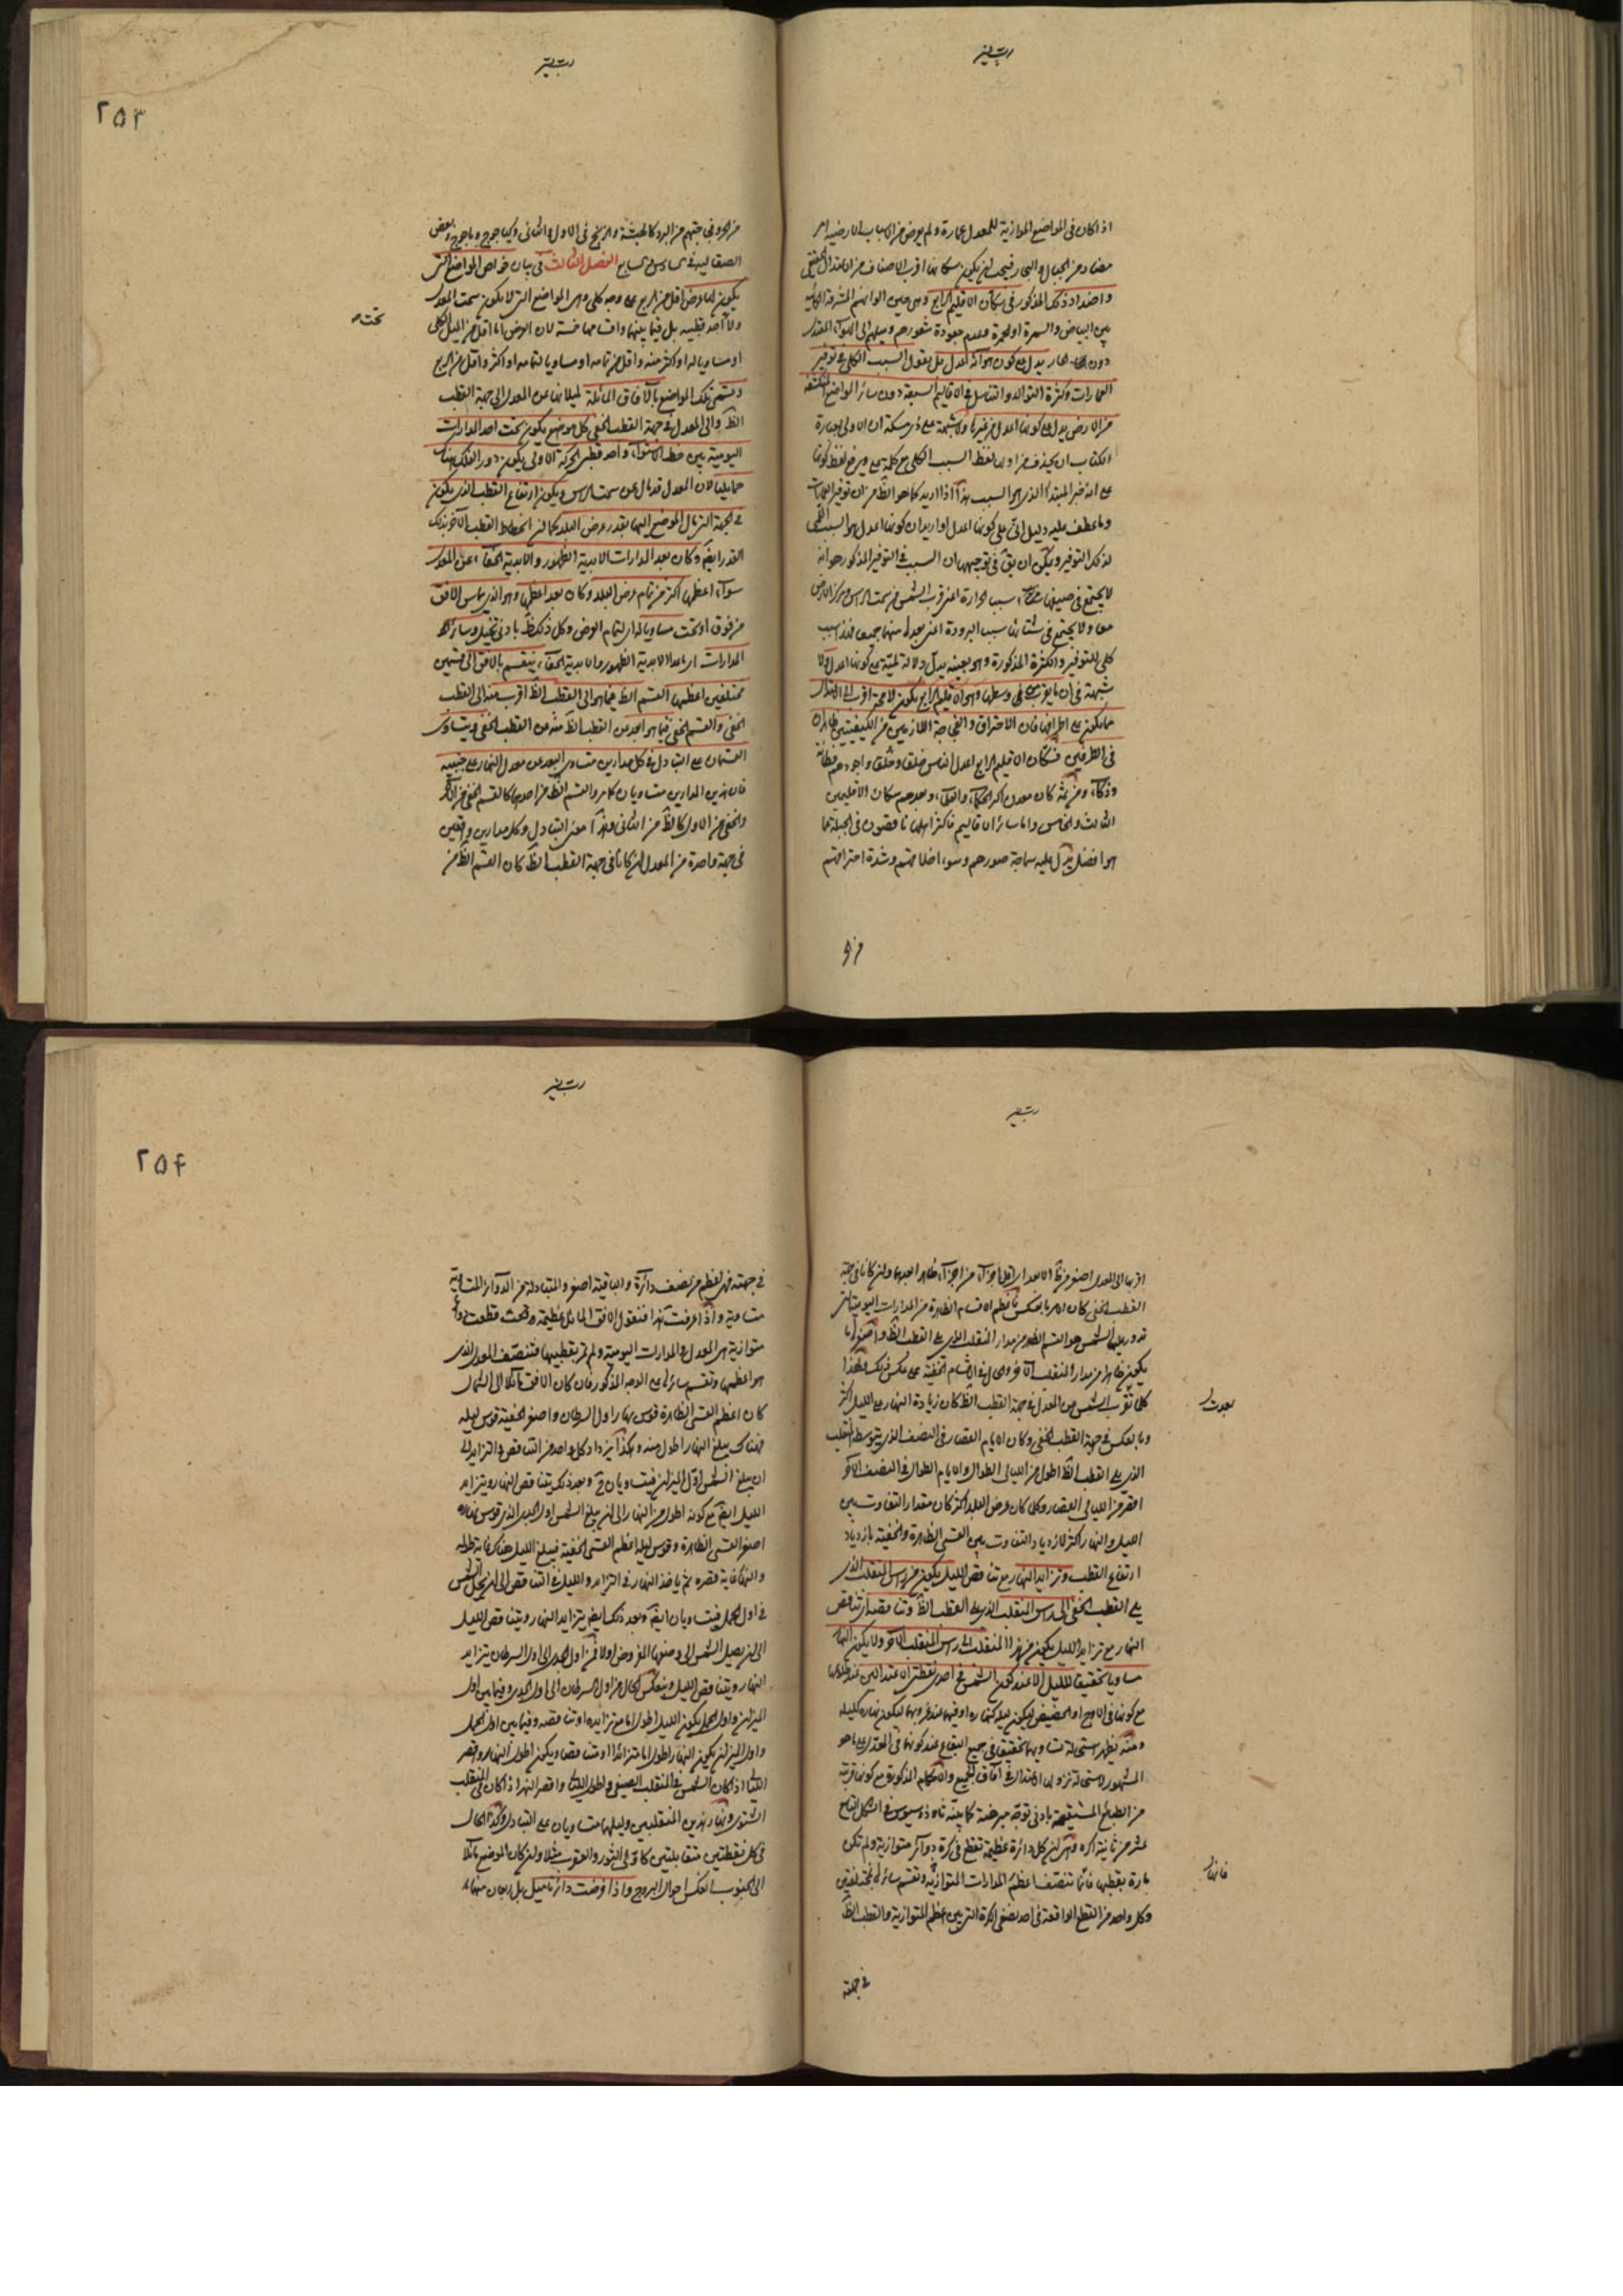 اذا كان فى المواضع الموازية للمعدل عمارة ولم يعرض من الاسباب الارضية امر
مضاد من الجبال والبحار فيجب ان يكون سكانها اقرب الاصناف من الاعتدال الحقيقى
واضداد ذلك المذكور فى سكان الاقليم الرابع وهى حسن الوانهم المشرقة الكائنة
بين البياض والسمرة او الحمرة وعدم جعودة شعورهم وميلهم الى الهواء المعتدل
دون الحار يدل على كون هوائه اعدل بل نقول السبب الكلى فى توفير
العمارات وكثرة التوالد والتناسل فى الاقاليم السبعة دون سائر المواضع المنكشفة
من الارض يدل على كونها اعدل من غيرها ولا شبهة على ذى مسكة ان الاولى بعبارة
الكتاب ان يحذف من اولها لفظ السبب الكلى مع كلمة فى ويرفع لفظ كونها
على انه خبر المبتدا الذى هو السبب هذا اذا اريد كما هو الظاهر ان توفير العمارات
وما عطف عليه دليل انى على كونها اعدل او اريد ان كونها اعدل هو السبب اللمى
لذلك التوفير ويمكن ان يقال فى توجيهه ان السبب فى التوفير المذكور هو انه
لا يجتمع فى صيفها سببا الحرارة اعنى قرب الشمس من سمت الراس ومركز الارض
معا ولا يجتمع فى شتائها سببا البرودة اعنى بعدها منهما جميعا فهذا سبب
كلى للتوفير والكثرة المذكورة وهو بعينه يدل دلالة لمية على كونها اعدل ولا
شبهة فى ان ما يقرب الى وسطها وهو الاقليم الرابع يكون لا محالة اقرب الى الاعتدال
مما يكون على اطرافها فان الاحتراق والفجاجة اللازمين من الكيفيتين ظاهران
فى الطرفين فسكان الاقليم الرابع اعدل الناس خلقا وخلقا واجودهم فطانة
وذكاء ومن ثمه كان معدن اكثر الحكماء والعلماء وبعدهم سكان الاقليمين
الثالث والخامس واما سائر الاقاليم فاكثر اهلها ناقصون فى الجبلة عما
هو افضل يدل عليه سماجة صورهم وسوء اخلاقهم وشدة احتراقهم
من الحر وفجاجتهم من البرد كالحبشة والزنج فى الاول والثانى وكياجوج وماجوج وبعض
الصقالبة فى السادس والسابع الفصل الثالث فى بيان خواص المواضع التى
يكون لها عرض اقل من الربع على وجه كلى وهى المواضع التى لا يكون سمت المعدل
تحت
ولا احد قطبيه بل فيما بينهما واقسامها خمسة لان العرض اما اقل من الميل الكلى
او مساويا له او اكثر منه واقل من تمامه او مساويا لتمامه او اكثر واقل من الربع
وتسمى تلك المواضع بالآفاق المائلة لميلانها عن المعدل الى جهة القطب
الظ والى المعدل فى جهة القطب الخفى كل موضع يكون تحت احد المدارات
اليومية بين خط الاستواء واحد قطبى الحركة الاولى يكون دور الفلك هناك
حمايليا لان المعدل قد مال عن سمت الراس ويكون ارتفاع القطب الذى يكون
فى الجهة التى مال الموضع اليها بقدر عرض البلد كما ان انحطاط القطب الآخر بذلك
القدر ايضا وكان بعد المدارات الابدية الظهور والابدية الخفاء عن المعدل
سواء اعظمها اكثر من تمام عرض البلد وكان بعد اعظمها وهو الذى يماس الافق
من فوق او تحت مساويا لتمام العرض وكل ذلك ظ بادنى تخيل وسائر
المدارات اى ما عدا الابدية الظهور والابدية الخفاء ينقسم بالافق الى قسمين
مختلفين اعظمهما القسم الظ فيما هو الى القطب الظ اقرب منه الى القطب
الخفى والقسم الخفى فيما هو ابعد من القطب الظ منه من القطب الخفى ويتساوى
القسمان على التبادل فى كل مدارين متساوى البعد عن معدل النهار على جنبيه
فان هذين المدارين متساويان كما مر والقسم الظ من احدهما كالقسم الخفى من الآخر
والخفى من الاول كالظ من الثانى وهذا معنى التبادل وكل مدارين واقعين
فى جهة واحدة من المعدل ان كانا فى جهة القطب الظ كان القسم الظ من
من الحر
٢٥٣
اقربهما الى المعدل اصغر من
القطب الخفى كان الامر بالعكس فاعظم الاقسام الظاهرة من المدارات اليومية التى
تدور بها الشمس هو القسم الظ من مدار المنقلب الذى يلى القطب الظ واصغرها ما
يكون ظاهرا من مدار المنقلب الآخر والحال فى الاقسام الخفية على عكس ذلك ولهذا
كلما قرب الشمس من المعدل فى جهة القطب الظ كان زيادة النهار على الليل اكثر
بعدت
وبالعكس فى جهة القطب الخفى وكان الايام القصار فى النصف الذى يتوسطه المنقلب
الذى يلى القطب الظ اطول من الليالى الطوال والايام الطوال فى النصف الآخر
اقصر من الليالى القصار وكلما كان عرض البلد اكثر كان مقدار التفاوت بين
الليل والنهار اكثر لازدياد التفاوت بين القسى الظاهرة والخفية بازدياد
ارتفاع القطب وتزايد النهار مع تناقص الليل يكون من راس المنقلب الذى
يلى القطب الخفى الى راس المنقلب الذى يلى القطب الظ وتناقص
النهار مع تزايد الليل يكون من هذا المنقلب الى راس المنقلب الآخر ولا يكون النهار
مساويا تحقيقا لليل الا عند كون الشمس فى احدى نقطتى الاعتدالين عند طلوعها
مع كونها فى الاوج او الحضيض ليكون ليله كنهاره او فيها عند غروبها ليكون نهاره كليله
ومنه يظهر استحالة تساويهما تحقيقا فى جميع البقاع عند كونها فى الاعتدال على ما هو
المشهور لاستحالة نزولها الاعتدال فى آفاق الجميع والاحكام المذكورة مع كونها قريبة
من الطبائع المستقيمة بادنى توجه مبرهنة كما بينه ثاوذوسيوس فى الشكل التاسع
عشر من ثانية اكره وهو ان كل دائرة عظيمة تقطع فى كرة دوائر متوازية ولم تكن
مارة بقطبيها فانها تنصف اعظم المدارات المتوازية وتقسم سائرها بمختلفين
فانها
وكل واحد من القطع الواقعة فى احد نصفى الكرة التى بين اعظم المتوازية والقطب الظ
فى جهته
٢٥٤
فى جهته فهى اعظم من نصف دائرة والباقية اصغر والمتبادلة من الدوائر المتساوية
متساوية واذا عرفت هذا فنقول الافق المائل عظيمة وقعت قطعت دوائر
متوازية هى المعدل والمدارات اليومية ولم تمر بقطبيها فتنصف المعدل الذى
هو اعظمها وتقسم سائرها على الوجه المذكور فان كان الافق مائلا الى الشمال
كان اعظم القسى الظاهرة قوس نهار اول السرطان واصغر الخفية قوس ليله
فهناك يبلغ النهار اطول منه وهكذا يزداد كل واحد من التناقص والتزايد الى
ان يبلغ الشمس اول الميزان فيتساويان ثم وبعد ذلك يتناقص النهار ويتزايد
الليل ايضا مع كونه اطول من النهار الى ان يبلغ الشمس اول الجدى الذى قوس نهاره
اصغر القسى الظاهرة وقوس ليله اعظم القسى الخفية فيبلغ الليل هناك غاية طوله
والنهار غاية قصره ثم ياخذ النهار فى التزايد والليل فى التناقص الى ان يحل الشمس
فى اول الحمل فيتساويان ايضا وبعد ذلك ايضا يتزايد النهار ويتناقص الليل
الى ان يصل الشمس الى موضعها المفروض اولا فمن اول الجدى الى اول السرطان يتزايد
النهار ويتناقص الليل وينعكس الحال من اول السرطان الى اول الجدى وفيما بين اول
الميزان واول الحمل يكون الليل اطول اما مع تزايده او تناقصه وفيما بين اول الحمل
واول الميزان يكون النهار اطول اما متزائدا او متناقصا ويكون اطول النهار واقصر
الليل اذا كان الشمس فى المنقلب الصيفى واطول الليل واقصر النهار اذا كان فى المنقلب
الشتوى ونهار هذين المنقلبين وليلهما متساويان على التبادل وكذا الحال
فى كل نقطتين متقابلتين كاولى الثور والعقرب مثلا وان كان الموضع مائلا
الى الجنوب انعكس احوال البروج واذا فرضت دائرتا ميل بل ربعان منهما